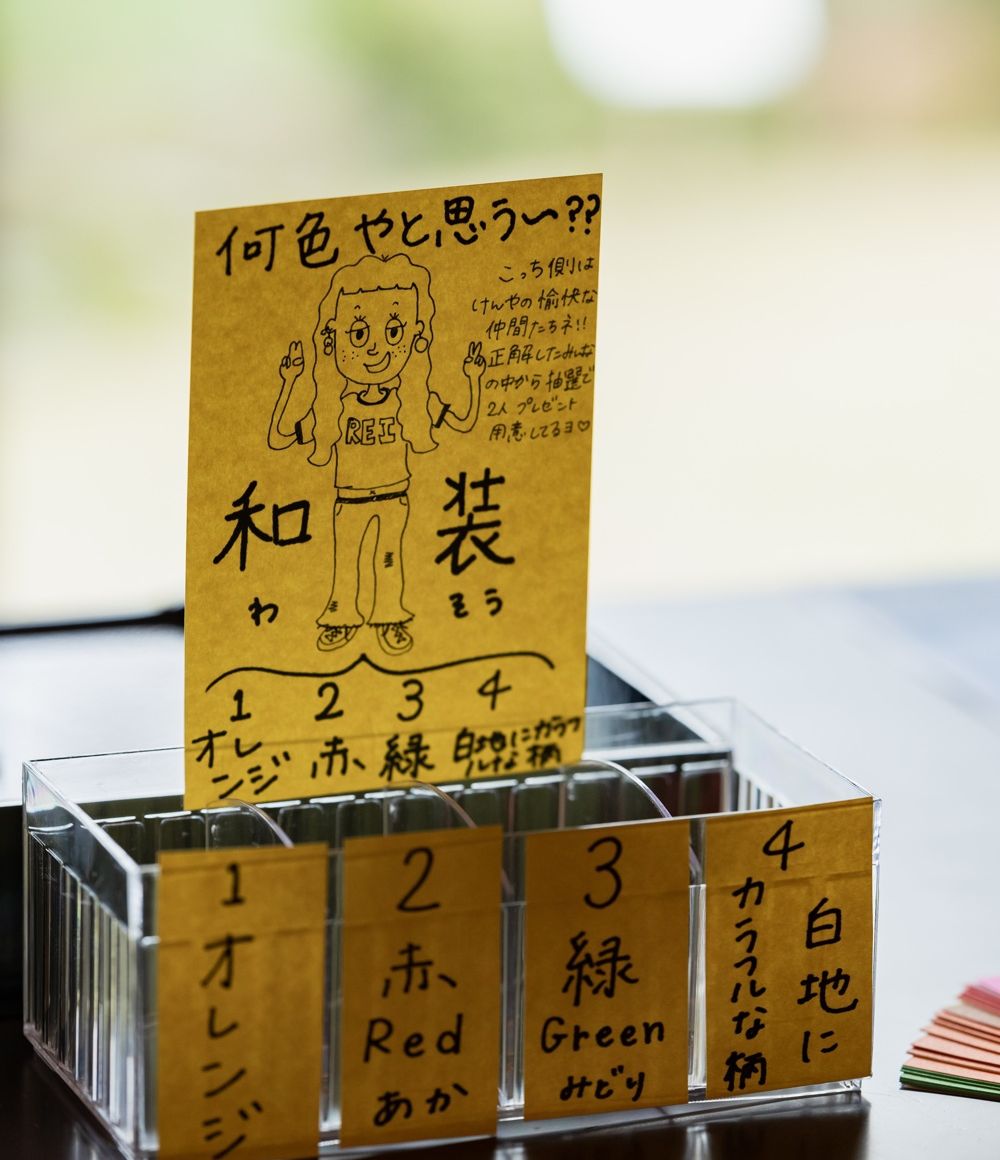 何色やと思うー??
こっち側は
けんやの愉快な
仲間たちネ!!
正解したみんな
の中から抽選で
2人プレゼント
用意してるヨ♡
REI
和装
わそう
1 2 3 4
オレンジ
赤
緑
白地にカラフルな柄
1
オレンジ
2
赤
Red
あか
3
緑
Green
みどり
4
白地に
カラフルな柄